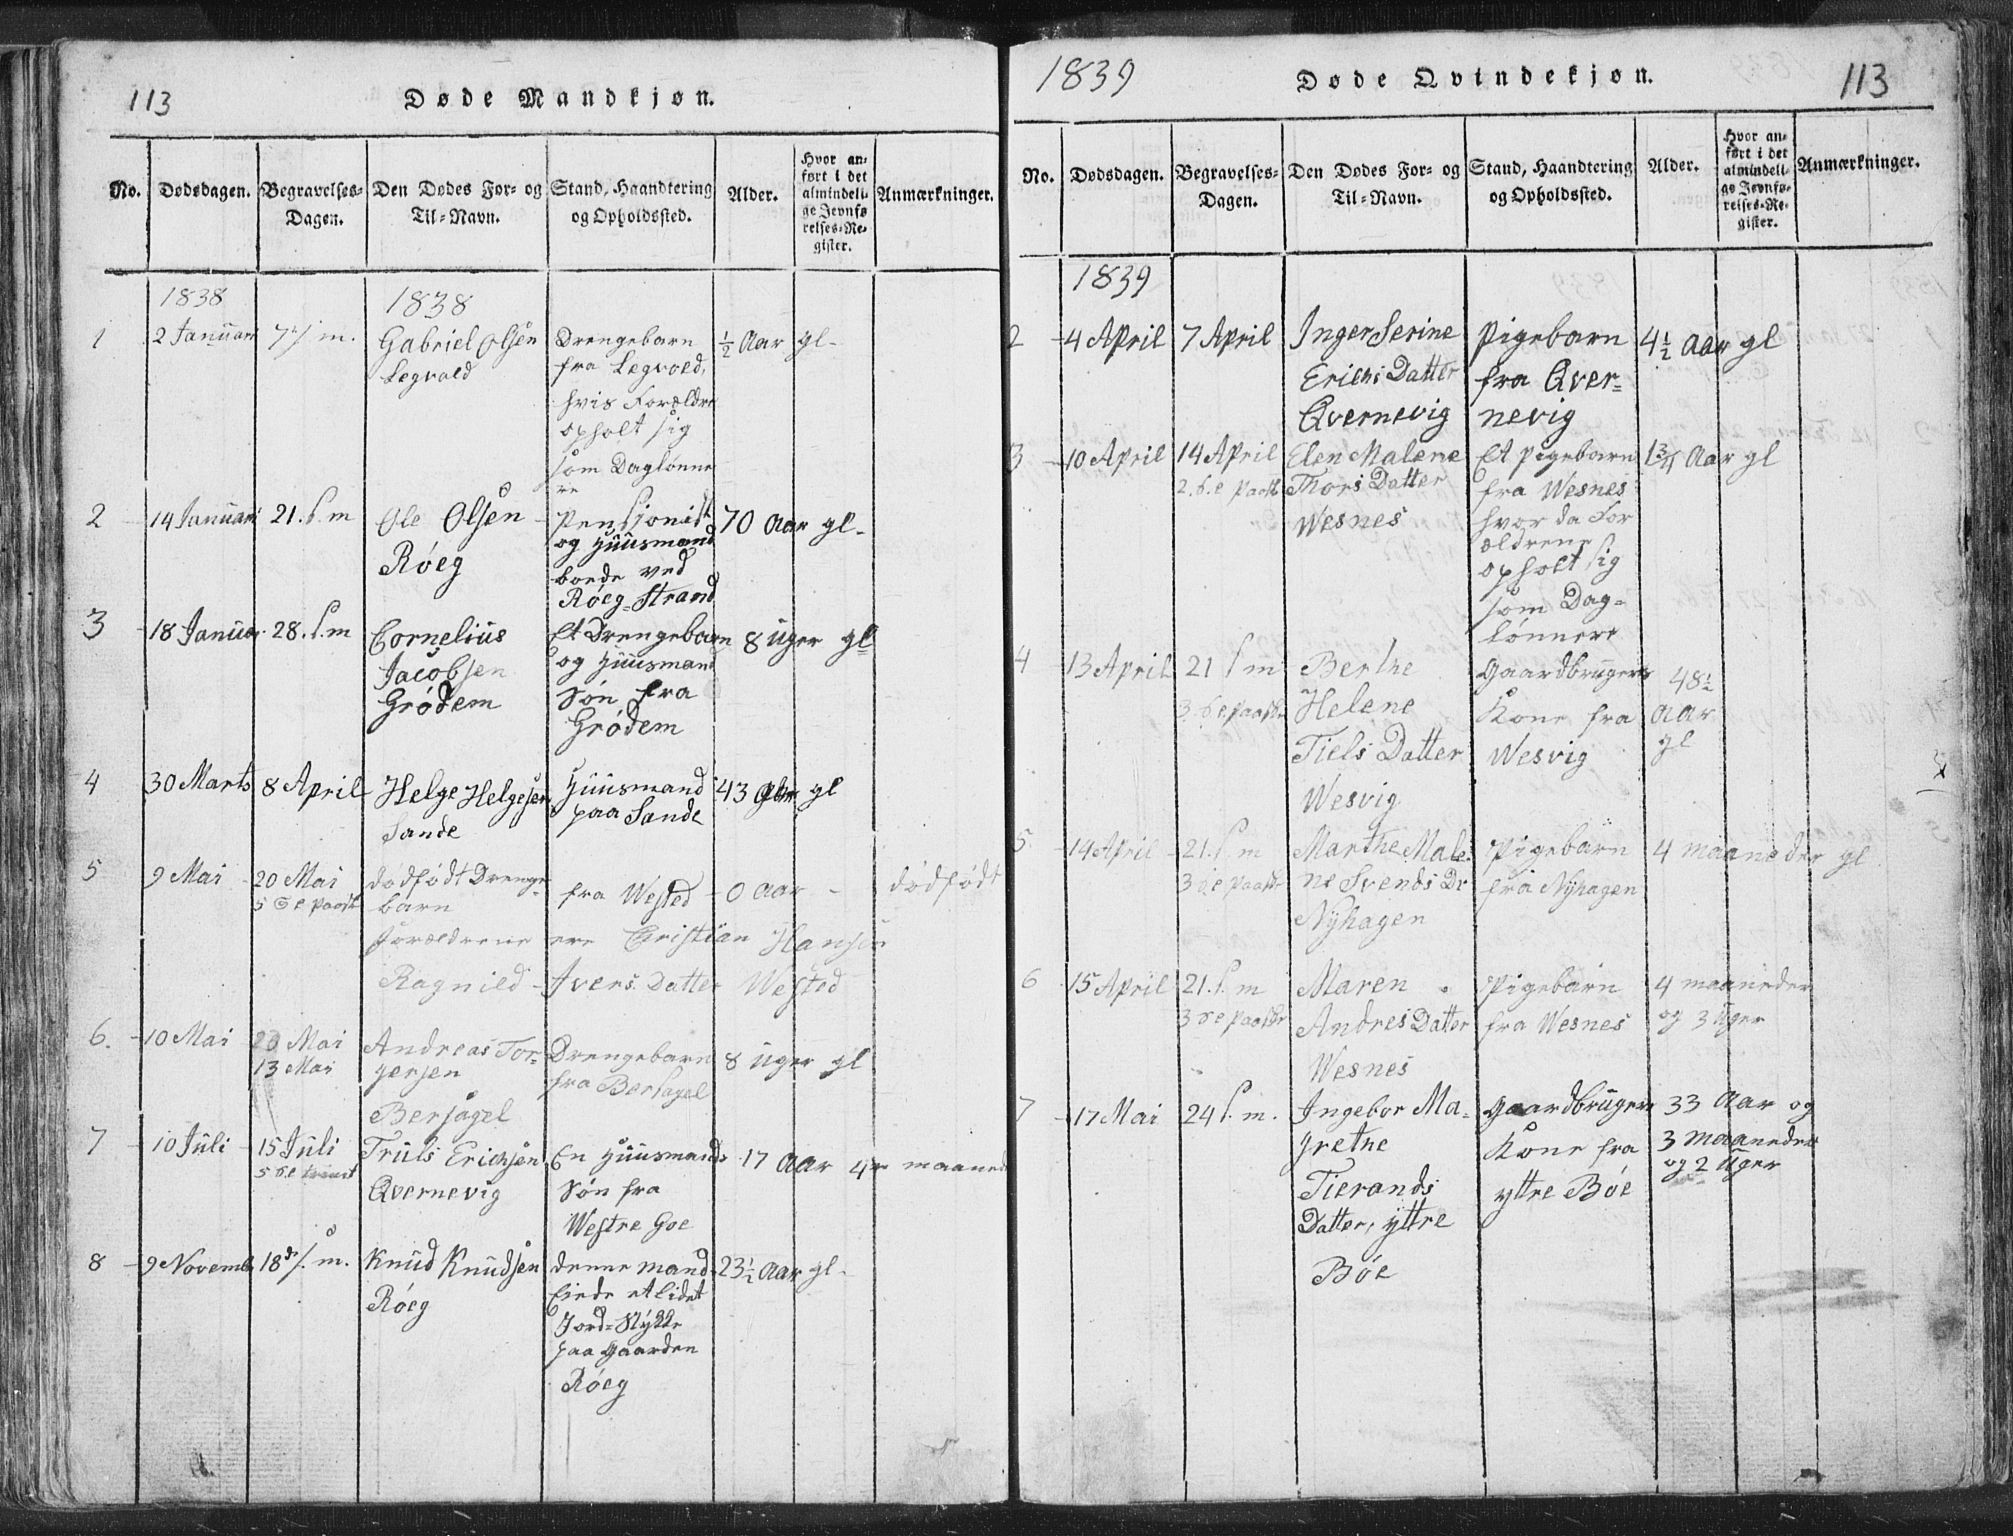 113
Døde Mandkjøn.
No.
Dødsdagen.
Begravelses-
Dagen.
Den Dødes For- og
Til-Navn.
Stand, Haandtering
og Opholdssted.
Alder.
Hvor an-
ført i det
almindeli-
ge Jevnfø-
relses-Re-
gister.
Anmærkninger.
1838
1838
1
2 Januari
m.
Gabriel Olsen
Legvold
Drengebarn
fra Legvold,
hvis Forældre
opholt sig
som Daglønne
re
½ Aar gl-
2
14 Januari
21. s. m
Ole Olsen
Röeg
Pensjonist
og Huusmand
boede ved
Röeg-Strand
70 Aar gl-
3
18 Januar
28. s. m
Cornelius
Jacobsen
Grödem
Et Drengebarn
og Huusmand
Sön fra
Grödem
8 uger gl
4
30 Marts
8 April
Helge Helgesen
Sande
Huusmand
paa Sande
43 Aar gl
5
9 Mai
20 Mai
5 S e Paask
dödfödt Drenge-
barn
fra Wested
0 Aar -
dödfödt
Forældrene ere Christian Hansen
Ragnild - Ivers Datter Wested
6.
10 Mai
20 Mai
13 Mai
Andreas Tor-
gersen
Bersagel
Drengebarn
fra Bersagel
8 uger gl
7
10 Juli
15 Juli
5 S.e trinit
Truls Erichsen
Qvernevig
En Huusmands
Sön fra
Westre Goe
17 Aar 4re maaned
8
9 Novemb.
18de s. m.
Knud Knudsen
Röeg
denne mand
Eiede et lidet
Jord-Stykke
paa Gaarden
Röeg
23½ Aar gl-
1839
Døde Qvindekjøn.
113
No.
Dødsdagen.
Begravelses-
Dagen.
Den Dødes For- og
Til-Navn.
Stand, Haandtering
og Opholdssted.
Alder.
Hvor an-
ført i det
almindeli-
ge Jevnfø-
relses-Re-
gister.
Anmærkninger.
1839
2
4 April
7 April
Inger Serine
Erichs Datter
Qvernevig
Pigebarn
fra Qver-
nevig
4½ Aar gl
3
10 April
14 April
2. S. e Paask
Elen Malene
Thors Datter
Wesnes
Et Pigebarn
fra Wesnes
hvor da For
ældrene
opholt sig
som Dag-
lönnere
1¾ Aar gl
4
13 April
21 s m
3. S e Paaske
Berthe
Helene
Tiels Datter
Wesvig
Gaardbrugers
Kone fra
Wesvig
48½
Aar
gl
5
14 April
21. s. m
3 S e Paaske
Marthe Male-
ne Svends Dr
Nyhagen
Pigebarn
fra Nyhagen
4 maaneder gl
6
15 April
21. s. m
3 S e Paaske
Maren
Andres Datter
Wesnes
Pigebarn
fra Wesnes
4 maaneder
og 3 uger
7
17 Mai
24 s. m.
Ingebor Ma-
grethe
Tierands
Datter, yttre
Böe
Gaardbrugers
Kone fra
yttre Böe
33 Aar og
3 maaneder
og 2 uger